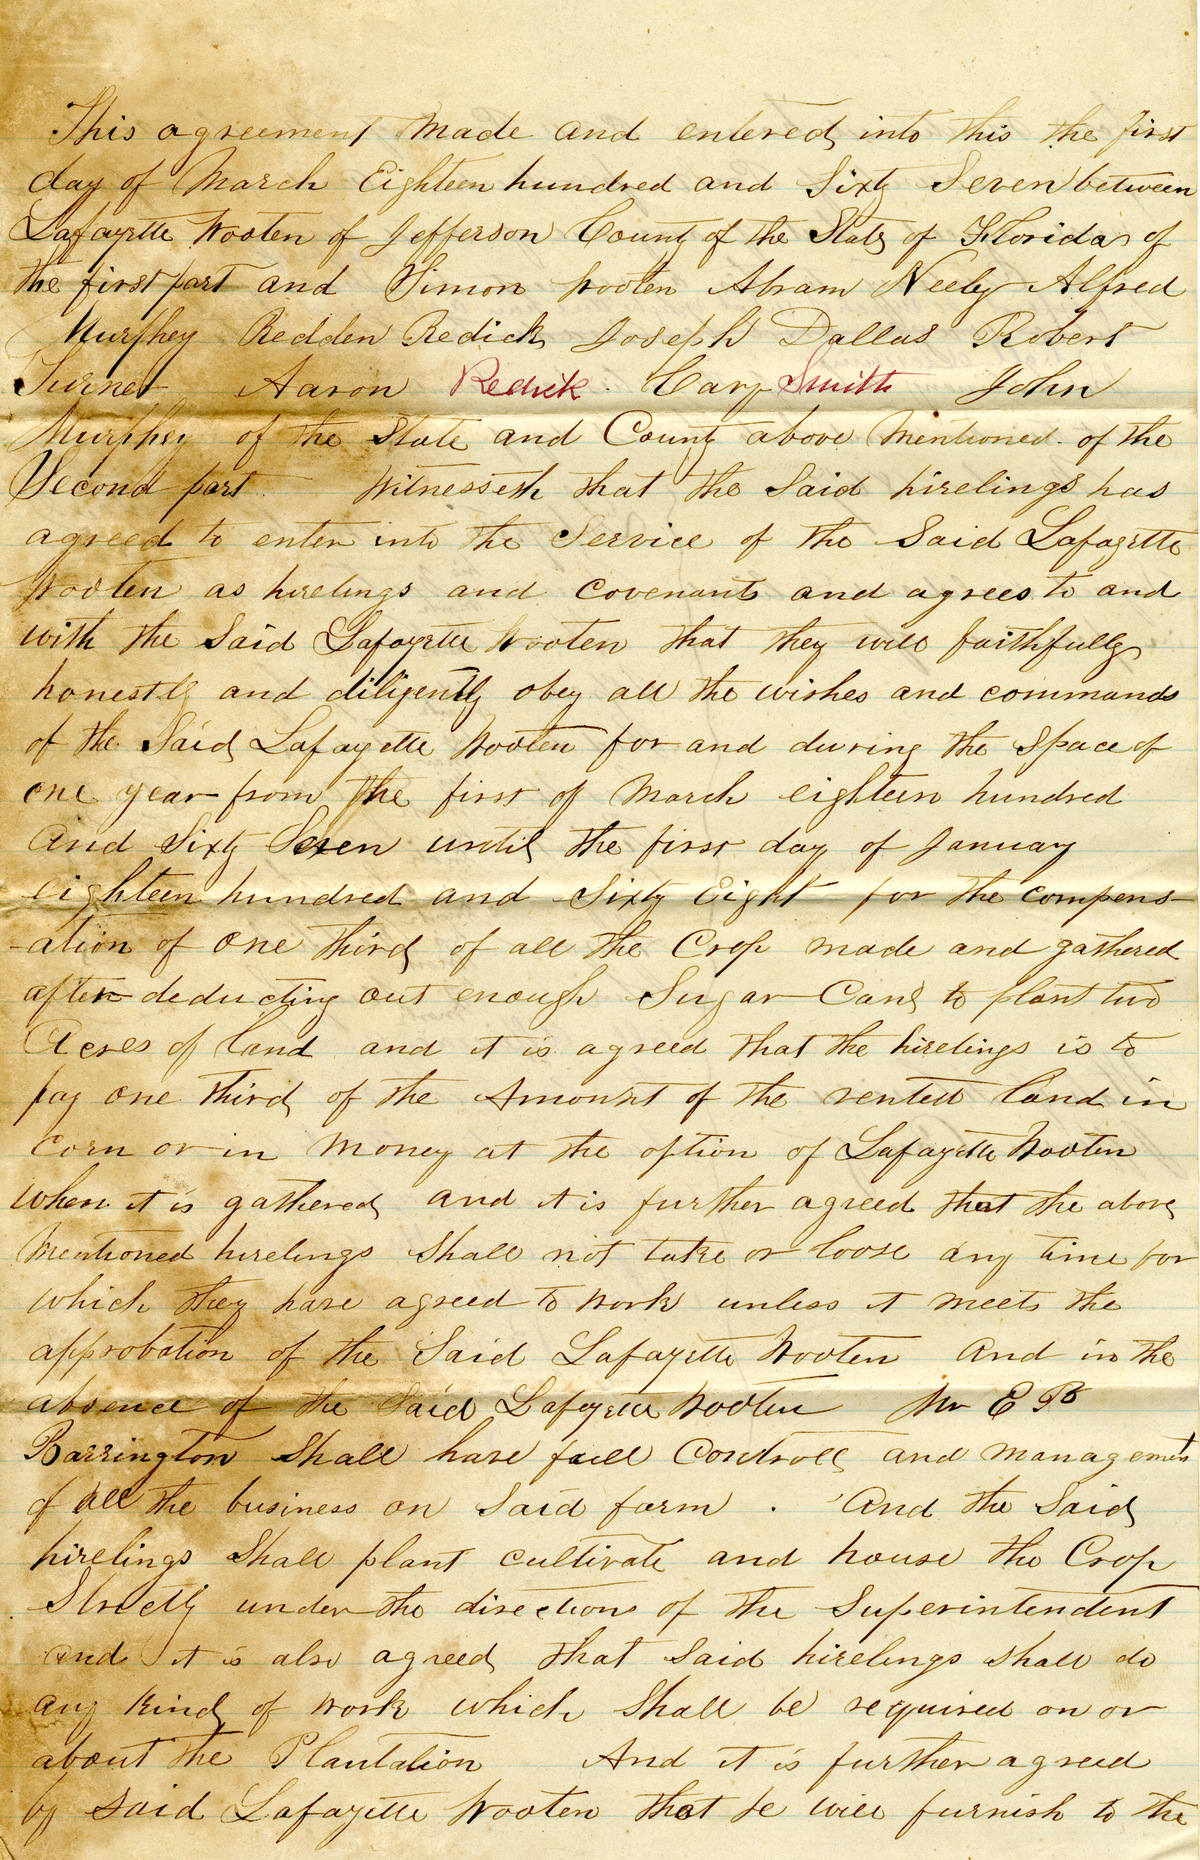 This agreement made and entered into this the first
day of March Eighteen hundred and Sixty Seven between
Lafayette Wooten of Jefferson County of the State of Florida of
the first part and Simon Wooten Abram Neely Alfred
Murphey Redden Redick Joseph Dallas Robert
Turner Aaron Redick Cary Smith John
Murphey of the State and County above mentioned of the
Second part Witnesseth that the Said hirelings has
agreed to enter into the Service of the Said Lafayette
Wooten as hirelings and covenants and agrees to and
with the Said Lafayette Wooten that they will faithfully
honestly and diligently obey all the wishes and commands
of the Said Lafayette Wooten for and during the space of
one year from the first of March eighteen hundred
and Sixty Seven until the first day of January
eighteen hundred and Sixty Eight for the compens-
-ation of one third of all the Crop made and gathered
after deducting out enough Sugar Cane to plant two
Acres of land and it is agreed that the hirelings is to
pay one third of the Amount of the rented land in
corn or in money at the option of Lafayette Wooten
when it is gathered and it is further agreed that the above
mentioned hirelings Shall not take or loose any time for
which they have agreed to work unless it meets the
approbation of the Said Lafayette Wooten And in the
absence of the Said Lafayette Wooten Mr E B
Barrington Shall have full controll and management
of all the business on Said farm . And the Said
hirelings Shall plant cultivate and house the Crop
Strictly under the directions of the Superintendent
and it is also agreed that Said hirelings shall do
any kind of work which Shall be required on or
about the Plantation And it is further agreed
by Said Lafayette Wooten that he will furnish to the